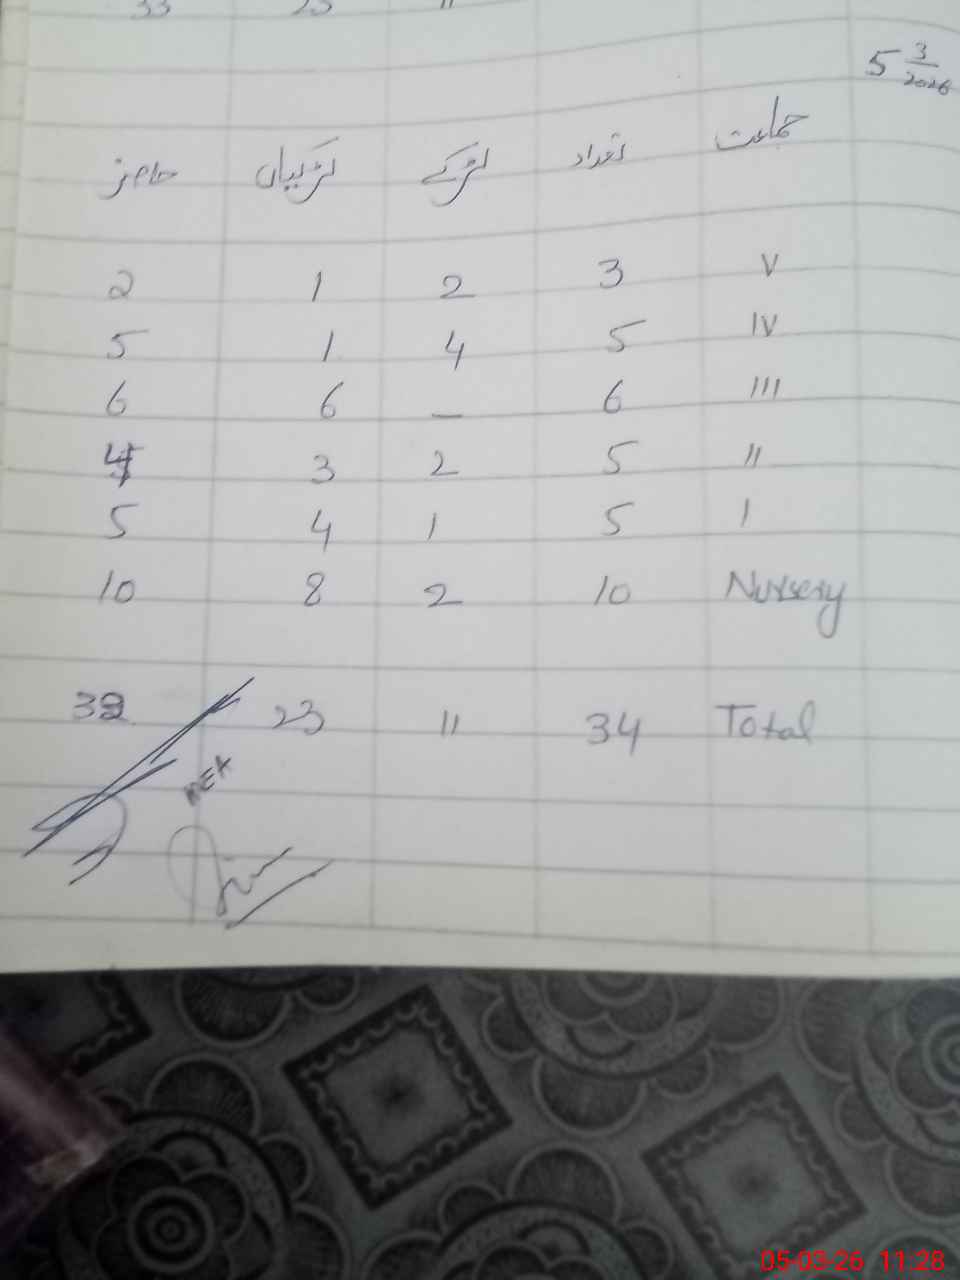 33 23 11
5 3/2026
جماعت تعداد لڑکے لڑکیاں حاضر
V 3 2 1 2
IV 5 4 1 5
III 6 — 6 6
II 5 2 3 4
I 5 1 4 5
Nursery 10 2 8 10
Total 34 11 23 32
MEA
05-03-26 11:28